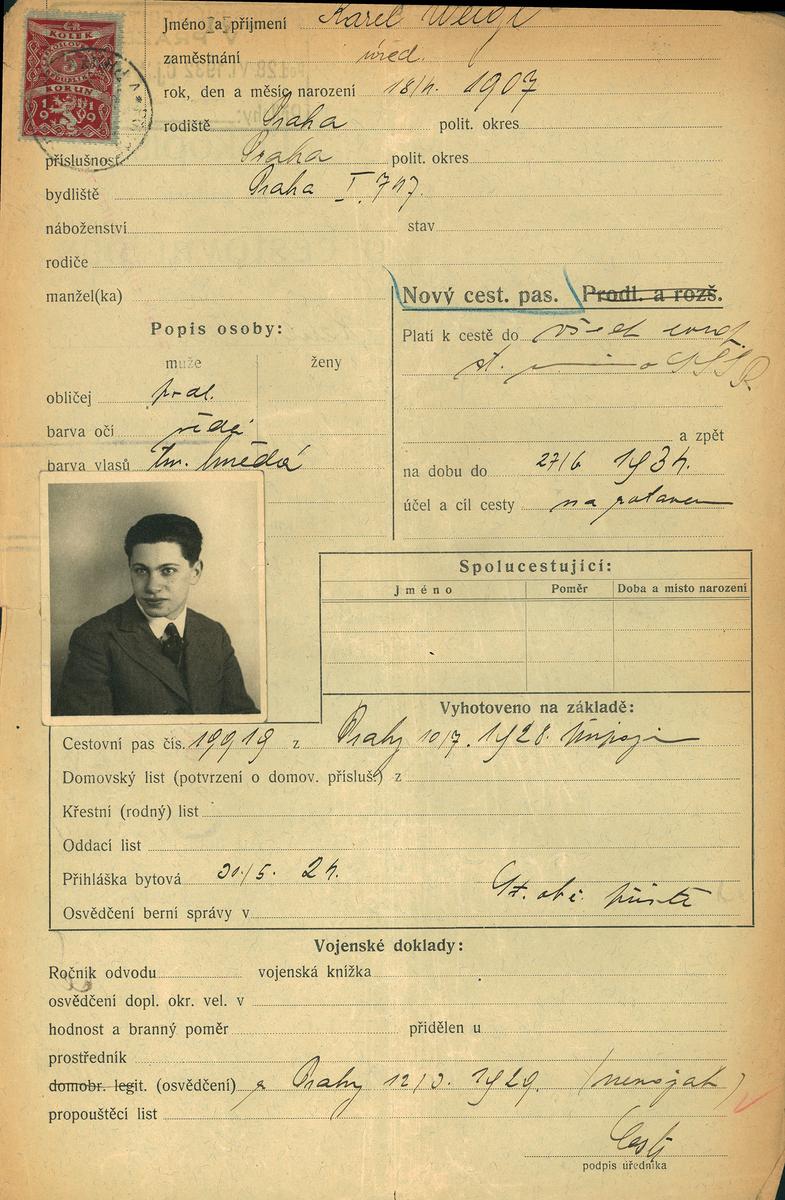 KOLEK
5
KORUN
1919
Jméno a příjmení Karel Weigl
zaměstnání úřed.
rok, den a měsíc narození 18/4. 1907
rodiště Praha polit. okres
příslušnost Praha polit. okres
bydliště Praha I. 747.
náboženství stav
rodiče
manžel(ka)
Nový cest. pas. Prodl. a rozš.
Popis osoby:
muže ženy
obličej
barva očí šedá
barva vlasů tm. hnědá
Platí k cestě do všech
st. SSSR.
a zpět
na dobu do 27/6 1934.
účel a cíl cesty na
Spolucestující:
Jméno Poměr Doba a místo narození
Vyhotoveno na základě:
Cestovní pas čís. 19919 z Prahy 10/7. 1928.
Domovský list (potvrzení o domov. přísluš.) z
Křestní (rodný) list
Oddací list
Přihláška bytová 30/5. 24.
St. obč. zjiště
Osvědčení berní správy v
Vojenské doklady:
Ročník odvodu vojenská knížka
osvědčení dopl. okr. vel. v
hodnost a branný poměr přidělen u
prostředník
domobr. legit. (osvědčení) z Prahy 12/3. 1929. (nevoják)
propouštěcí list
podpis úředníka